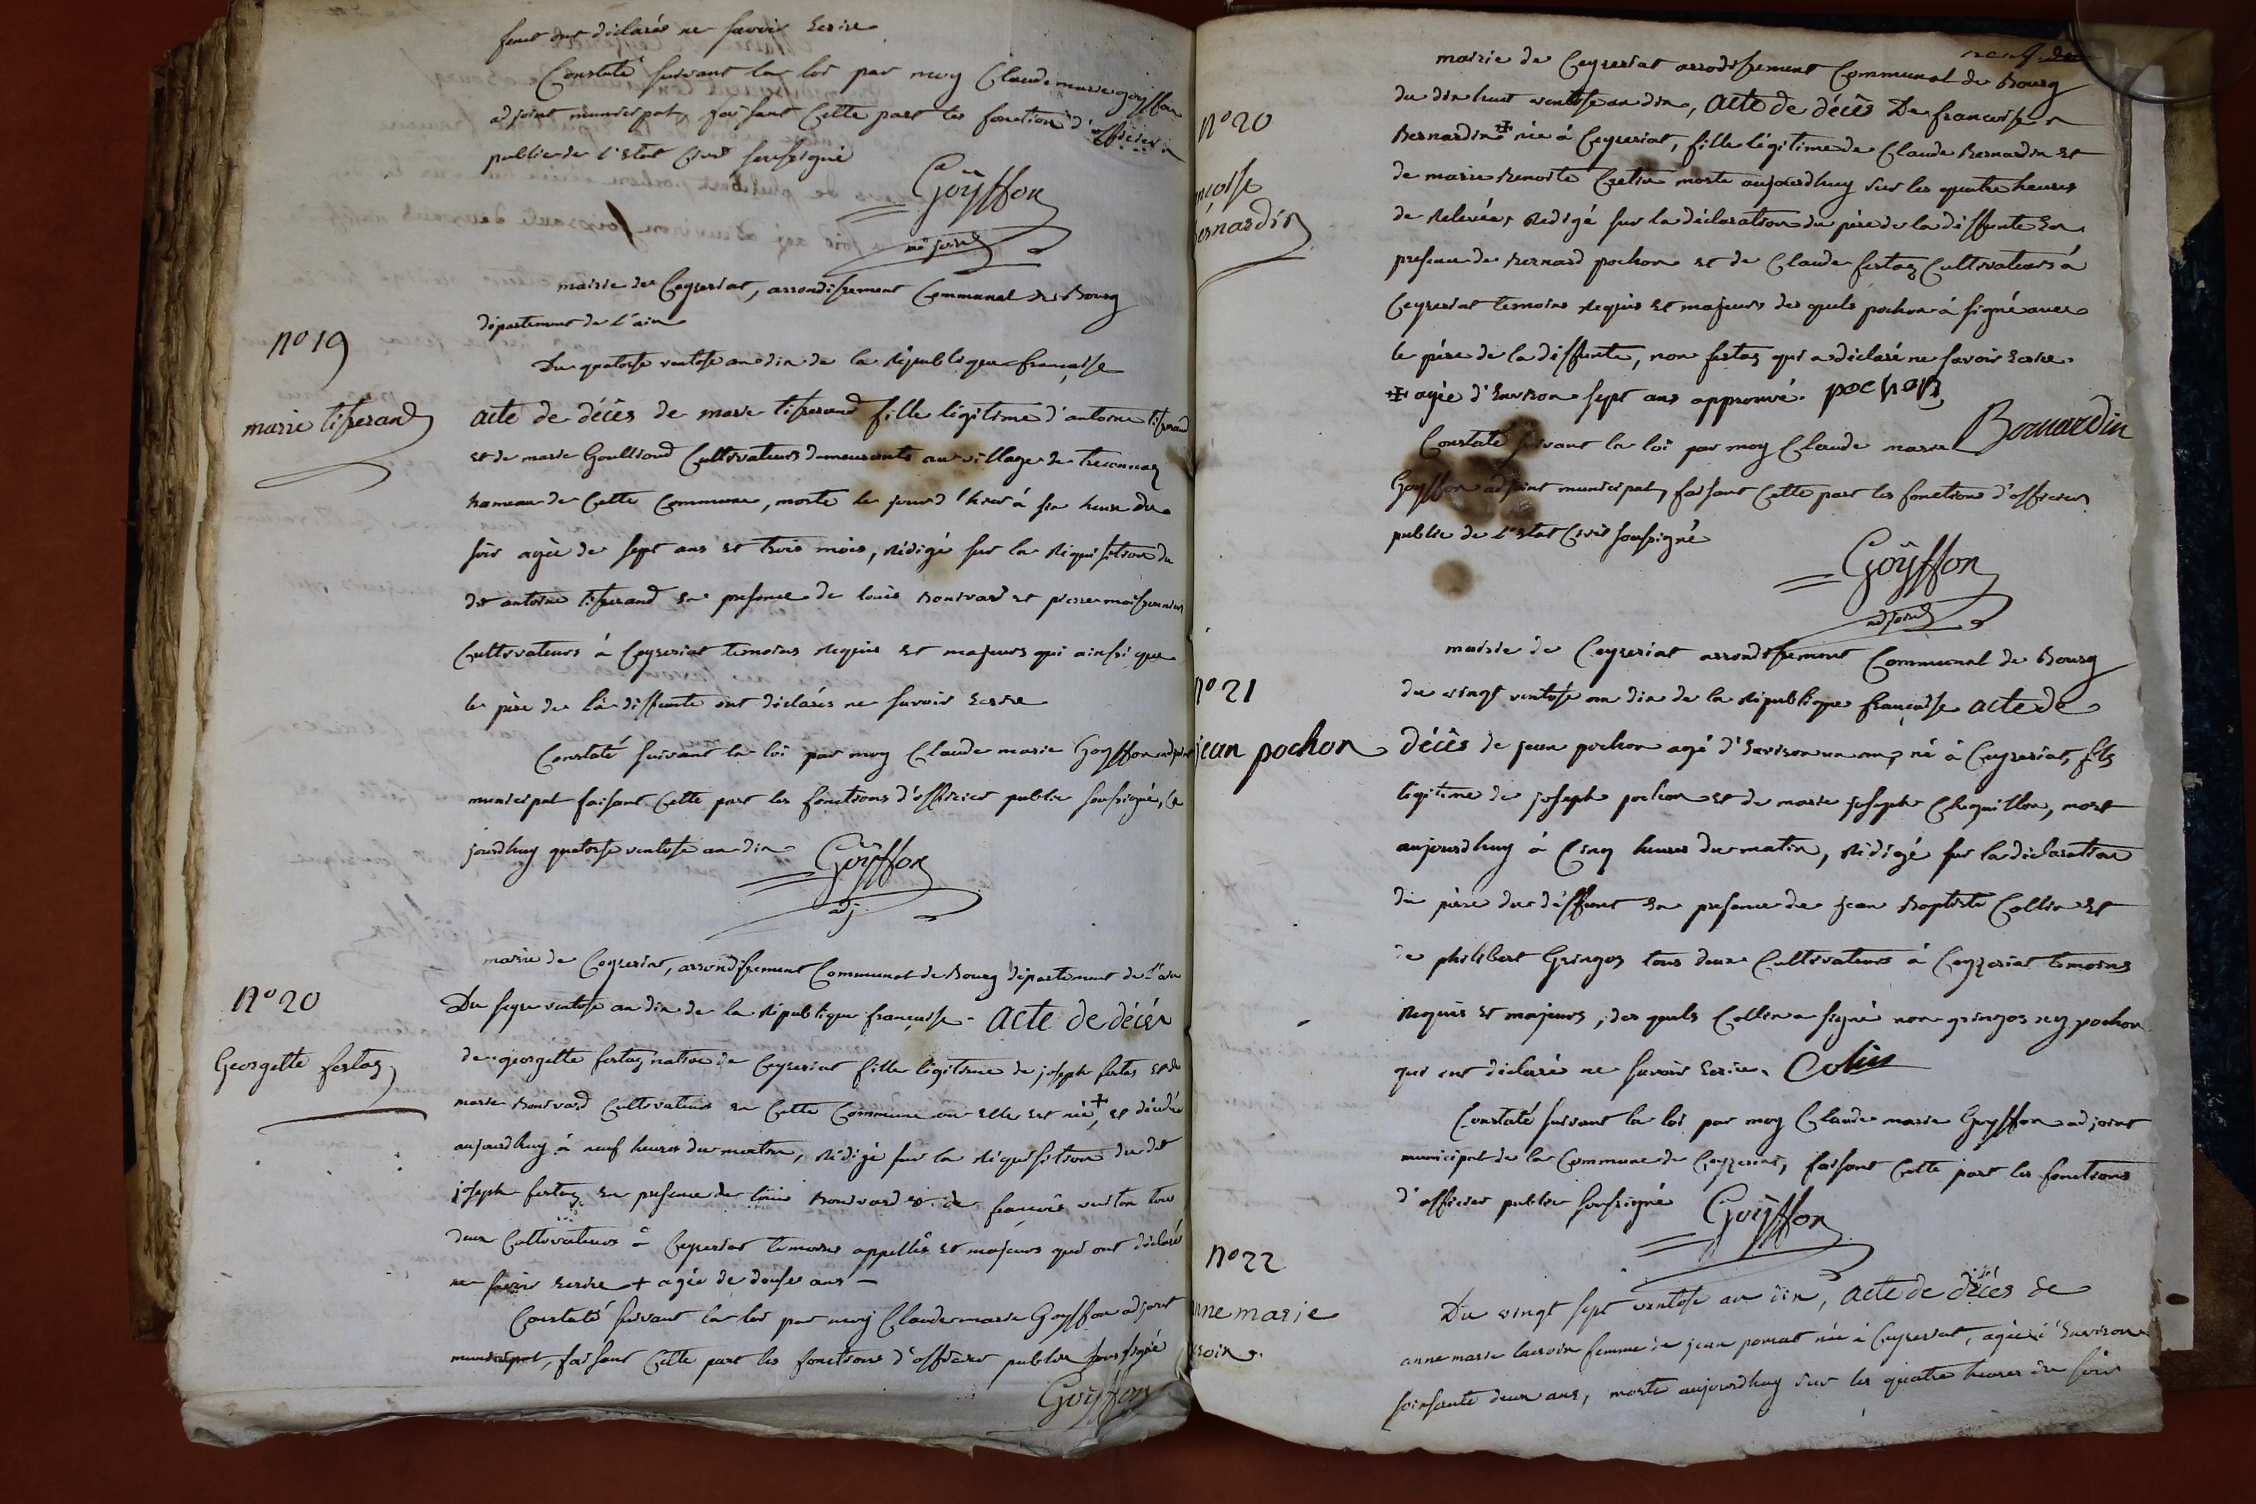 funt ont déclarés ne savoir Ecrire
Constaté suivant la loi par moy Claude marie goyffon
adjoint municipal, faisant Cette part les fonctions d'officier
public de l'Etat Civil soussigné
Goÿffon
mairie de Ceyseriat, arrondissement Communal de Bourg
département de l'ain
n° 19
Du quatorse ventose an dix de la République française
marie tisserand
acte de décès de marie tisserand fille légitime d'antoine tisserand
et de marie Goullioud Cultivateurs demeurants au village de treconnaz
hameau de Cette Commune, morte le jourd'hier à six heure du
soir agée de sept ans et trois mois, rédigé sur la réquisition du
dit antoine tisserand en presence de louis Bouvard et pierre moissonnier
Cultivateurs à Ceyseriat temoins requis et majeurs qui ainsi que
le père de la deffunte ont déclarés ne savoir Ecrire
Constaté suivant la loi par moy Claude marie Goyffon adjoint
municipal faisant Cette part les fonctions d'officier public soussigné, Ce
jourdhuy quatorse ventose an dix
Goÿffon
adj.
mairie de Ceyseriat, arrondissement Communal de Bourg département de l'ain
n° 20
Du seize ventose an dix de la République française - acte de décès
Georgette fertaz
de georgette fertaz native de Ceyseriat fille légitime de joseph fertas et de
marie Bouvard Cultivateurs en Cette Commune ou elle est née +, et décedée
aujourdhuy à neuf heures du matin, rédigé sur la réquisition du dit
joseph fertaz en presence de louis Bouvard et de françois tous
deux Cultivateurs à Ceyseriat temoins appellés et majeurs qui ont déclarés
ne savoir Ecrire + agée de douse ans -
Constaté suivant la loi par moy Claude marie Goyffon adjoint
municipal, faisant Cette part les fonctions d'officier public soussigné
Goÿffon
mairie de Ceyseriat arrondissement Communal de Bourg
n° 20
du dix huit ventose an dix, acte de décès De francoise
Bernardin ✠ née à Ceyseriat, fille légitime de Claude Bernardin et
ncoise
de marie Benoite Cretin morte aujourdhuy sur les quatre heures
ernardin
de relevée, rédigé sur la déclaration du père de la deffunte En
presence de Bernard pochon et de Claude fertaz Cultivateurs à
Ceyseriat temoins requis et majeurs des quels pochon à signé avec
le père de la deffunte, non fertaz qui a déclaré ne savoir Ecrire.
✠ agée d'Environ sept ans approuvé. pochon
Bernardin
Constaté suivant la loi par moy Claude marie
Goyffon adjoint municipal, faisant Cette part les fonctions d'officier
public de l'Etat Civil soussigné
Goÿffon
adjoint
mairie de Ceyseriat arrondissement Communal de Bourg
n° 21
du vingt ventose an dix de la République française acte de
jean pochon
décès de jean pochon agé d'Environ un an, né à Ceyseriat, fils
légitime de joseph pochon et de marie joseph Chquillon, mort
aujourdhuy à Cinq heures du matin, rédigé sur la déclaration
du père du deffunt en presence de jean Baptiste Collin et
de philibert Gringoz tous deux Cultivateurs à Ceyzeriat temoins
requis et majeurs, des quels Collin a signé non gringoz ny pochon
qui ont déclaré ne savoir Ecrire. Colin
Constaté suivant la loi par moy Claude marie Goyffon adjoint
municipal de la Commune de Ceyzeriat, faisant Cette part les fonctions
d'officier public soussigné
Goÿffon
n° 22
Du vingt sept ventose an dix, acte de décès de
nne marie
anne marie lacroix femme de jean née à Ceyseriat, agée d'Environ
roix.
soixante deux ans, morte aujourdhuy sur les quatre heures du soir